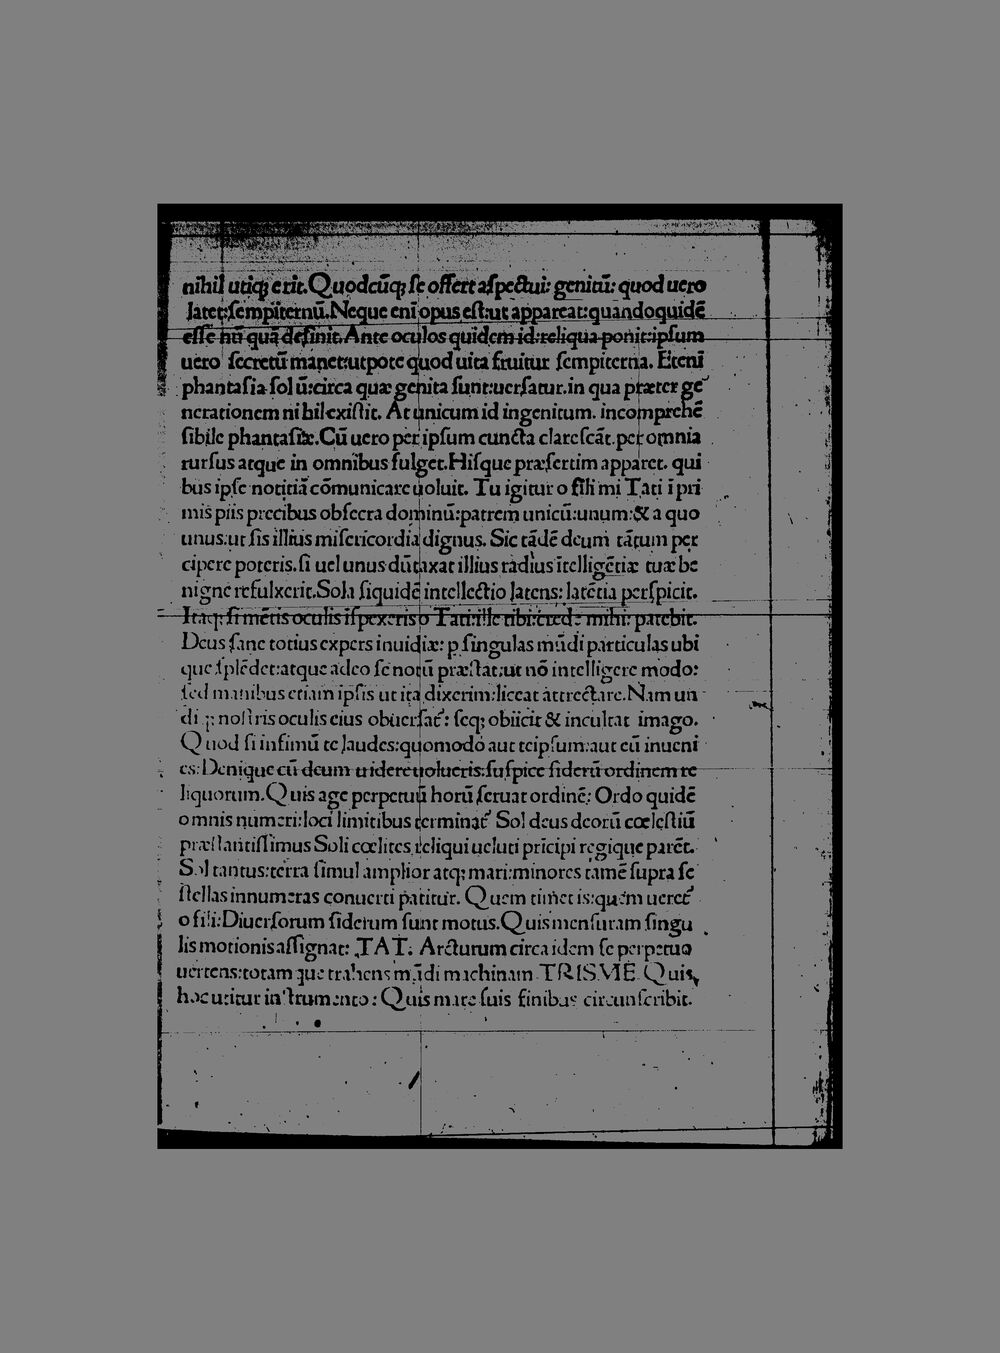 nihil utiqꝫ erit. Quodcūqꝫ ſe offert aſpectui: genitū: quod uero
latet: ſempiternū. Neque eni opus eſt: ut appareat: quandoquidē
eſſe nū quā deſinit. Ante oculos quidem id: reliqua ponit: ipſum
uero ſecretū manet: utpote quod uita fruitur ſempiterna. Eteni
phantaſia ſol ū: circa quæ genita ſunt: uerſatur. in qua præter ge
nerationem ni hil exiſtit. At unicum id ingenitum. incomprehē
ſibile phantaſiæ. Cū uero per ipſum cuncta clareſcāt. per omnia
rurſus atque in omnibus fulget. Hiſque præſertim apparet. qui
bus ipſe notitiā cōmunicare uoluit. Tu igitur o fili mi Tati ī pri
mis piis precibus obſecra dominū: patrem unicū: unum: & a quo
unus: ut ſis illius miſericordia dignus. Sic tādē deum tātum per
cipere poteris. ſi uel unus dūtaxat illius radius ītelligētiæ tuæ be
nigne refulxerit. Sola ſiquidē intellectio latens: latētia perſpicit.
Itaqꝫ ſi mētis oculis īſpexeris o Tati: ille tibi: crede mihi: patebit.
Deus ſane totius expers inuidiæ: p ſingulas mūdi particulas ubi
que ſplēdet: atque adeo ſe notū præſtat: ut nō intelligere modo:
ſed manibus etiam ipſis ut ita dixerim: liceat attrectare. Nam un
di qꝫ noſtris oculis eius obuerſat᷑: ſeqꝫ obiicit & incultat imago.
Quod ſi infimū te laudes: quomodo aut teipſum: aut eū inueni
es: Denique cū deum uidere uolueris: ſuſpice ſiderū ordinem re
liquorum. Quis age perpetuū horū ſeruat ordinē: Ordo quidē
omnis numeri: loci limitibus terminat᷑ Sol deus deorū cœleſtiū
præſtantiſſimus Soli cœlites reliqui ueluti pricipi regique parēt.
Sol tantus: terra ſimul amplior atqꝫ mari: minores tamē ſupra ſe
ſtellas innumeras conuerti patitur. Quem timet is: quem ueret᷑
o fili: Diuerſorum ſiderum ſunt motus. Quis menſuram ſingu
lis motionis aſſignat: TAT. Arcturum circa idem ſe perpetuo
uertens: totam que trahens mūdi machinam TRISME Quis
hoc utitur inſtrumento: Quis mare ſuis finibus circunſcribit.